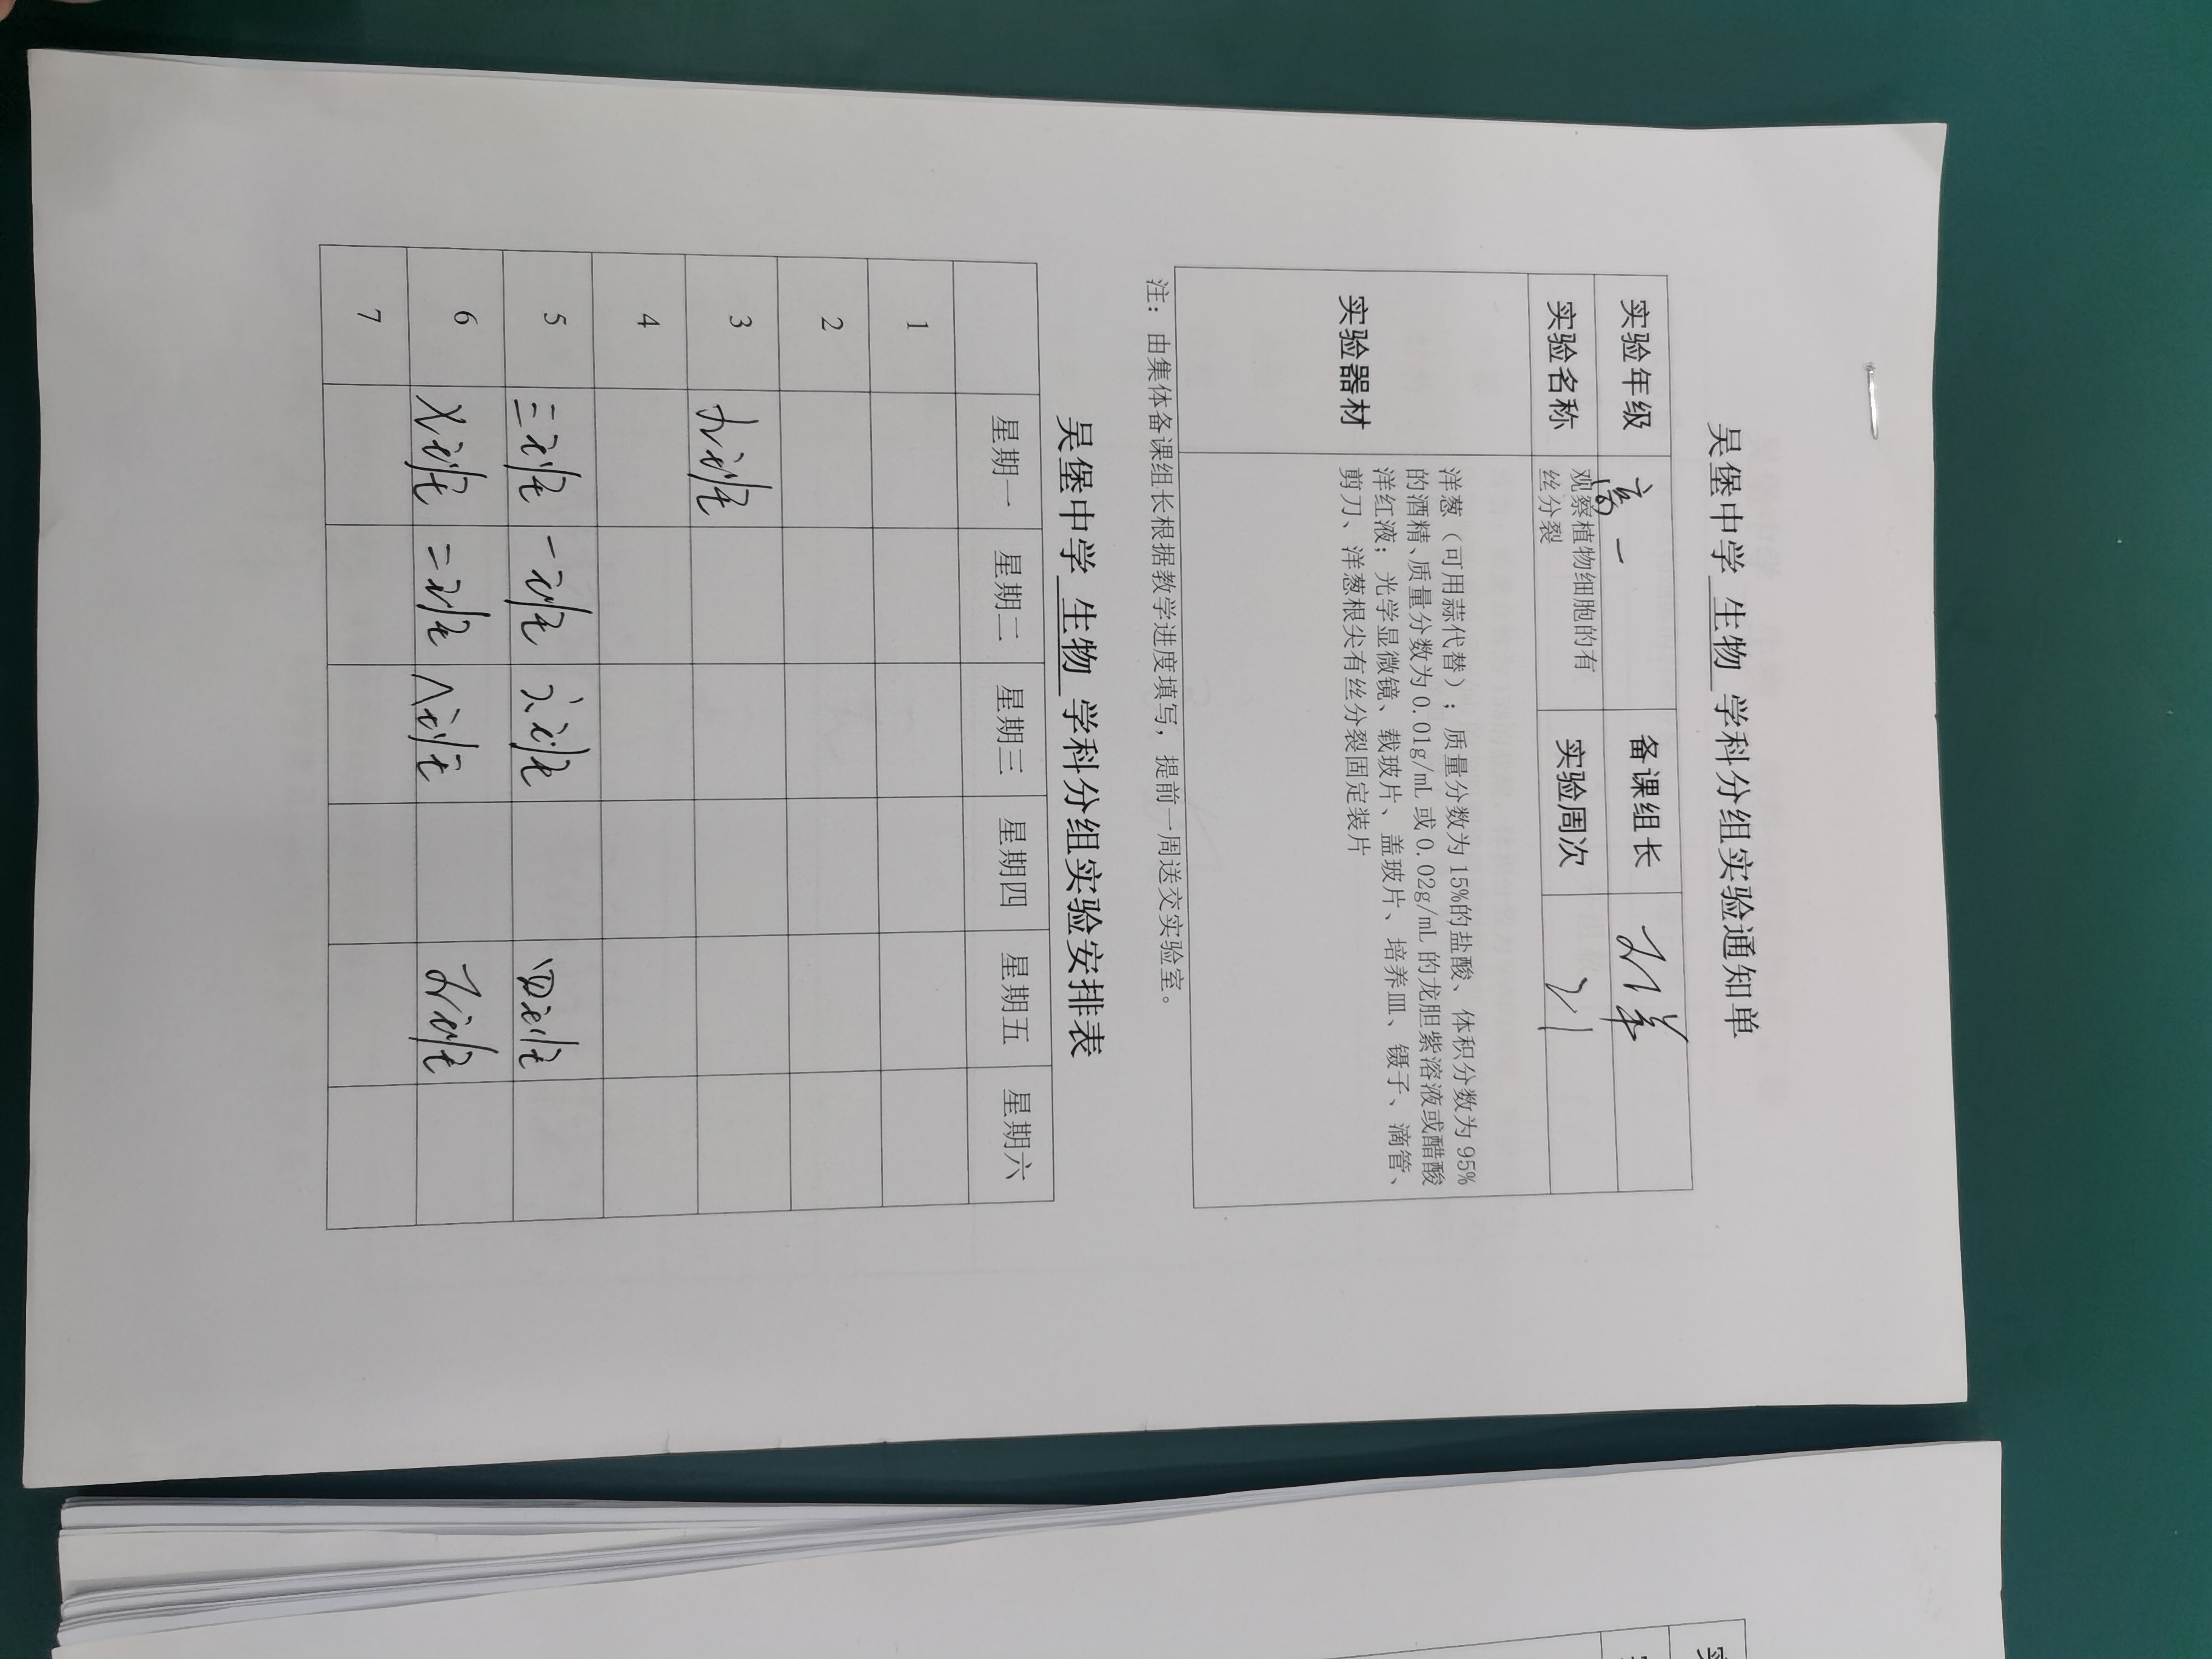 吴堡中学 生物 学科分组实验通知单
实验年级 高一 备课组长
实验名称 观察植物细胞的有
丝分裂 实验周次
实验器材
洋葱（可用蒜代替）；质量分数为15%的盐酸、体积分数为95%
的酒精、质量分数为0.01g/mL 或0.02g/mL 的龙胆紫溶液或醋酸
洋红液；光学显微镜、载玻片、盖玻片、培养皿、镊子、滴管、
剪刀、洋葱根尖有丝分裂固定装片
注：由集体备课组长根据教学进度填写，提前一周送交实验室。
吴堡中学 生物 学科分组实验安排表
星期一 星期二 星期三 星期四 星期五 星期六
1
2
3
4
5 三 一 四
6 二 八
7